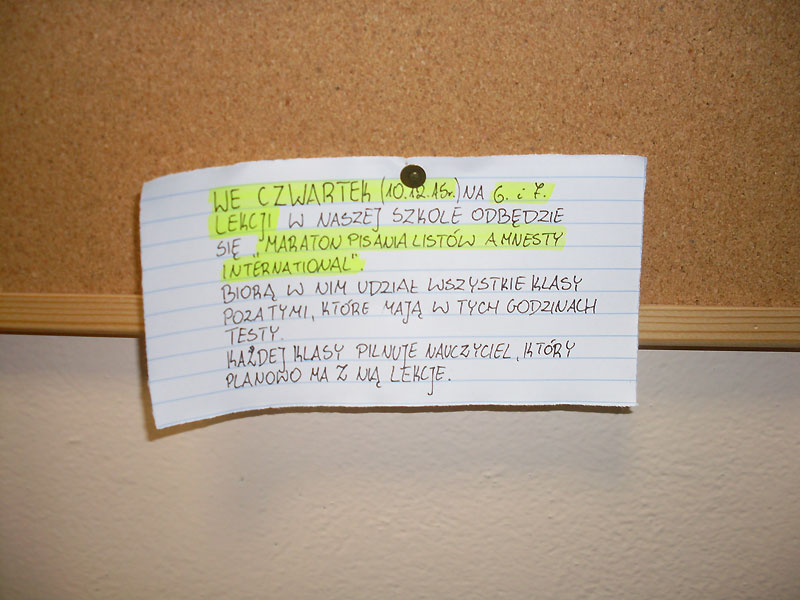 WE CZWARTEK (10.12.15r.) NA 6. i 7.
LEKCJI W NASZEJ SZKOLE ODBĘDZIE
SIĘ „MARATON PISANIA LISTÓW AMNESTY
INTERNATIONAL".
BIORĄ W NIM UDZIAŁ WSZYSTKIE KLASY
POZA TYMI, KTÓRE MAJĄ W TYCH GODZINACH
TESTY.
KAŻDEJ KLASY PILNUJE NAUCZYCIEL, KTÓRY
PLANOWO MA Z NIĄ LEKCJE.